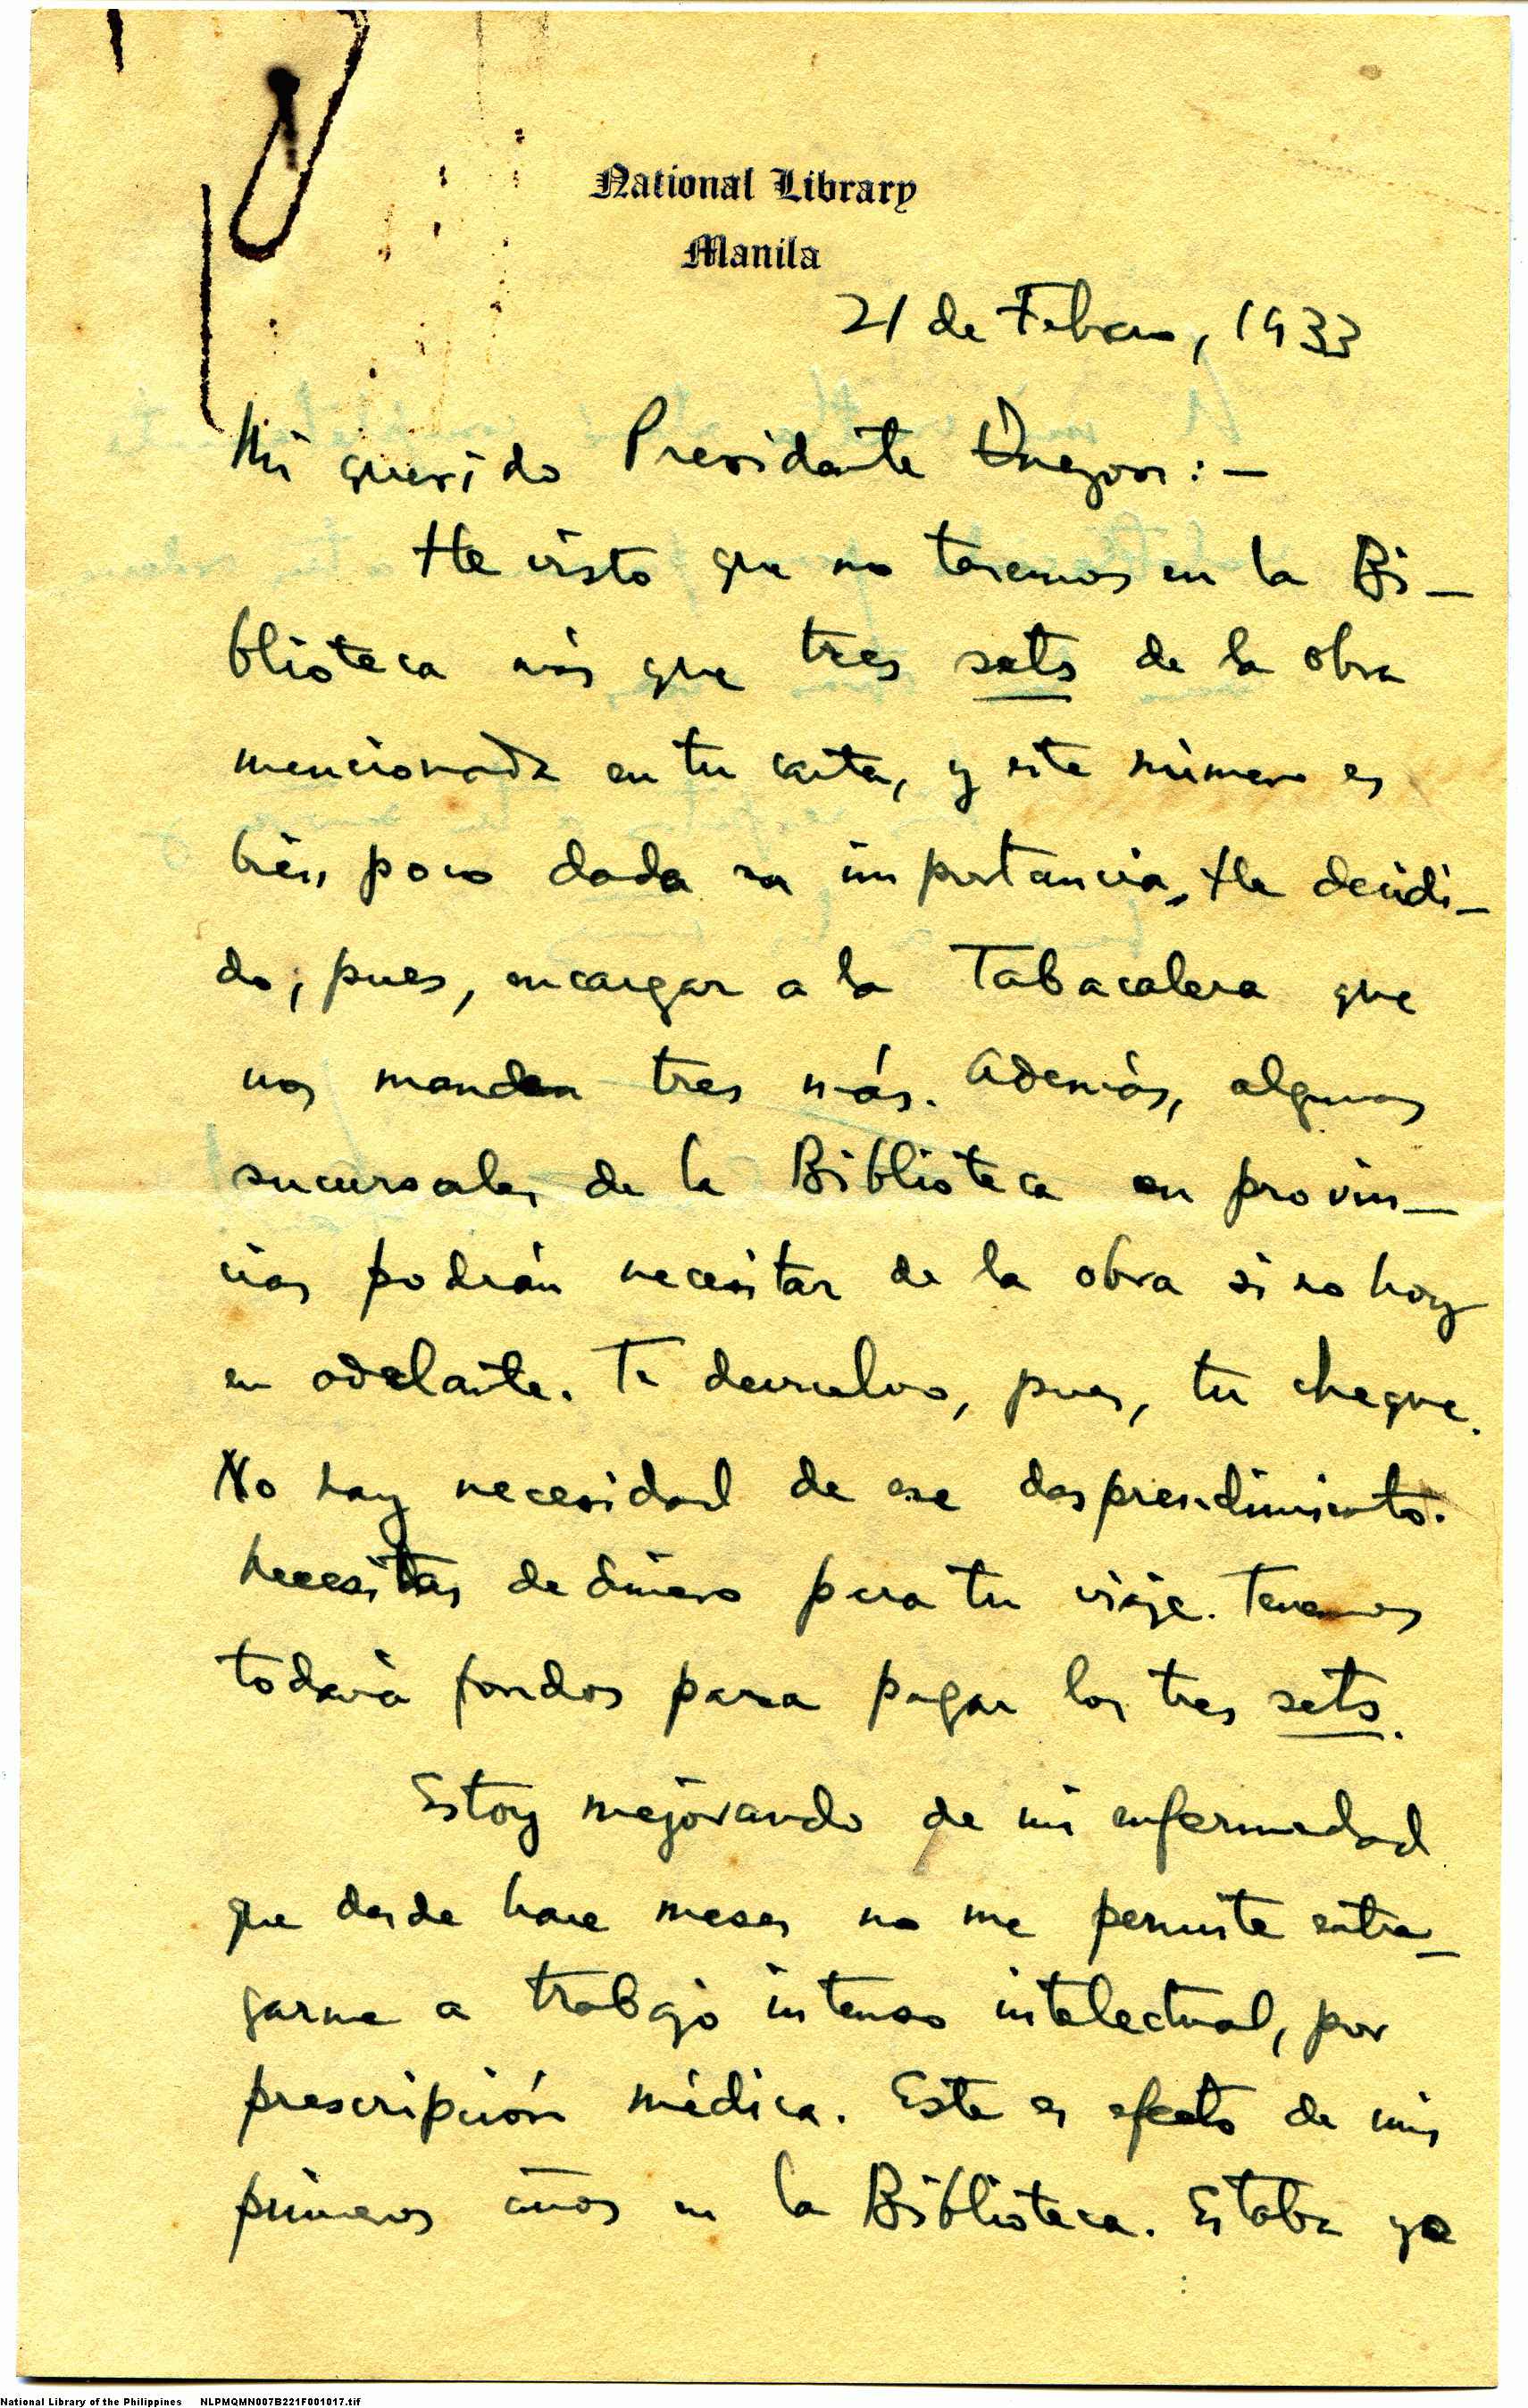 National Library
Manila
21 de Febrero, 1933
Mi querido Presidente Quezon:—
He visto que no tenemos en la Bi-
blioteca más que tres sets de la obra
mencionada en tu carta, y este número es
bien poco dada su importancia. He decidi-
do, pues, encargar a la Tabacalera que
nos manden tres más. Además, algunas
sucursales de la Biblioteca en provin-
cias podrán necesitar de la obra si no hoy
en adelante. Te devuelvo, pues, tu cheque.
No hay necesidad de ese desprendimiento.
Necesitas de dinero para tu viaje. Tenemos
todavía fondos para pagar los tres sets.
Estoy mejorando de mi enfermedad
que desde hace meses no me permite entre-
garme a trabajo intenso intelectual, por
prescripción médica. Este es efecto de mis
primeros años en la Biblioteca. Estaba ya
National Library of the Philippines NLPMQMN007B221F001017.tif